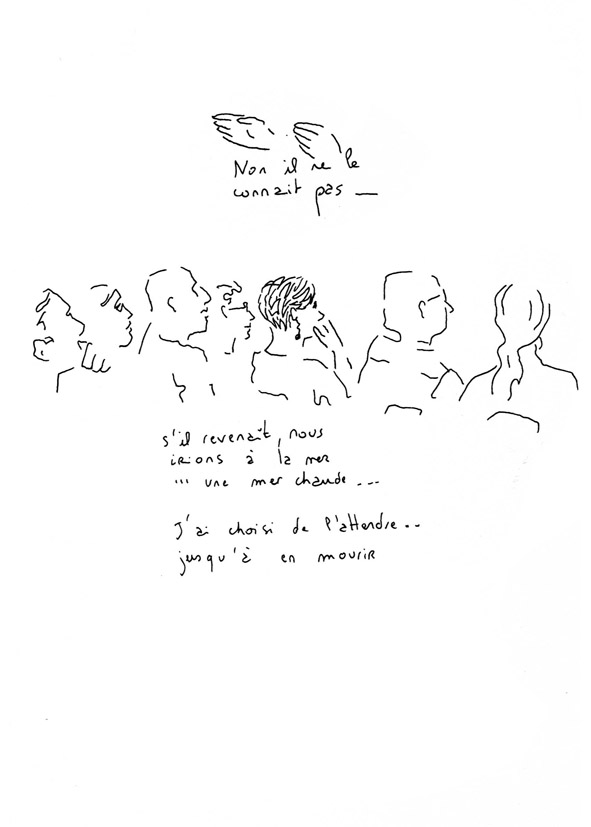 Non il ne le
connait pas —
s'il revenait, nous
irions à la mer
... une mer chaude...
J'ai choisi de l'attendre..
jusqu'à en mourir